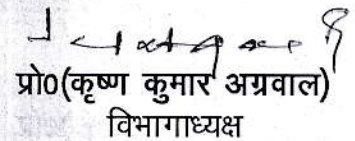 प्रो0(कृष्ण कुमार अग्रवाल)
विभागाध्यक्ष